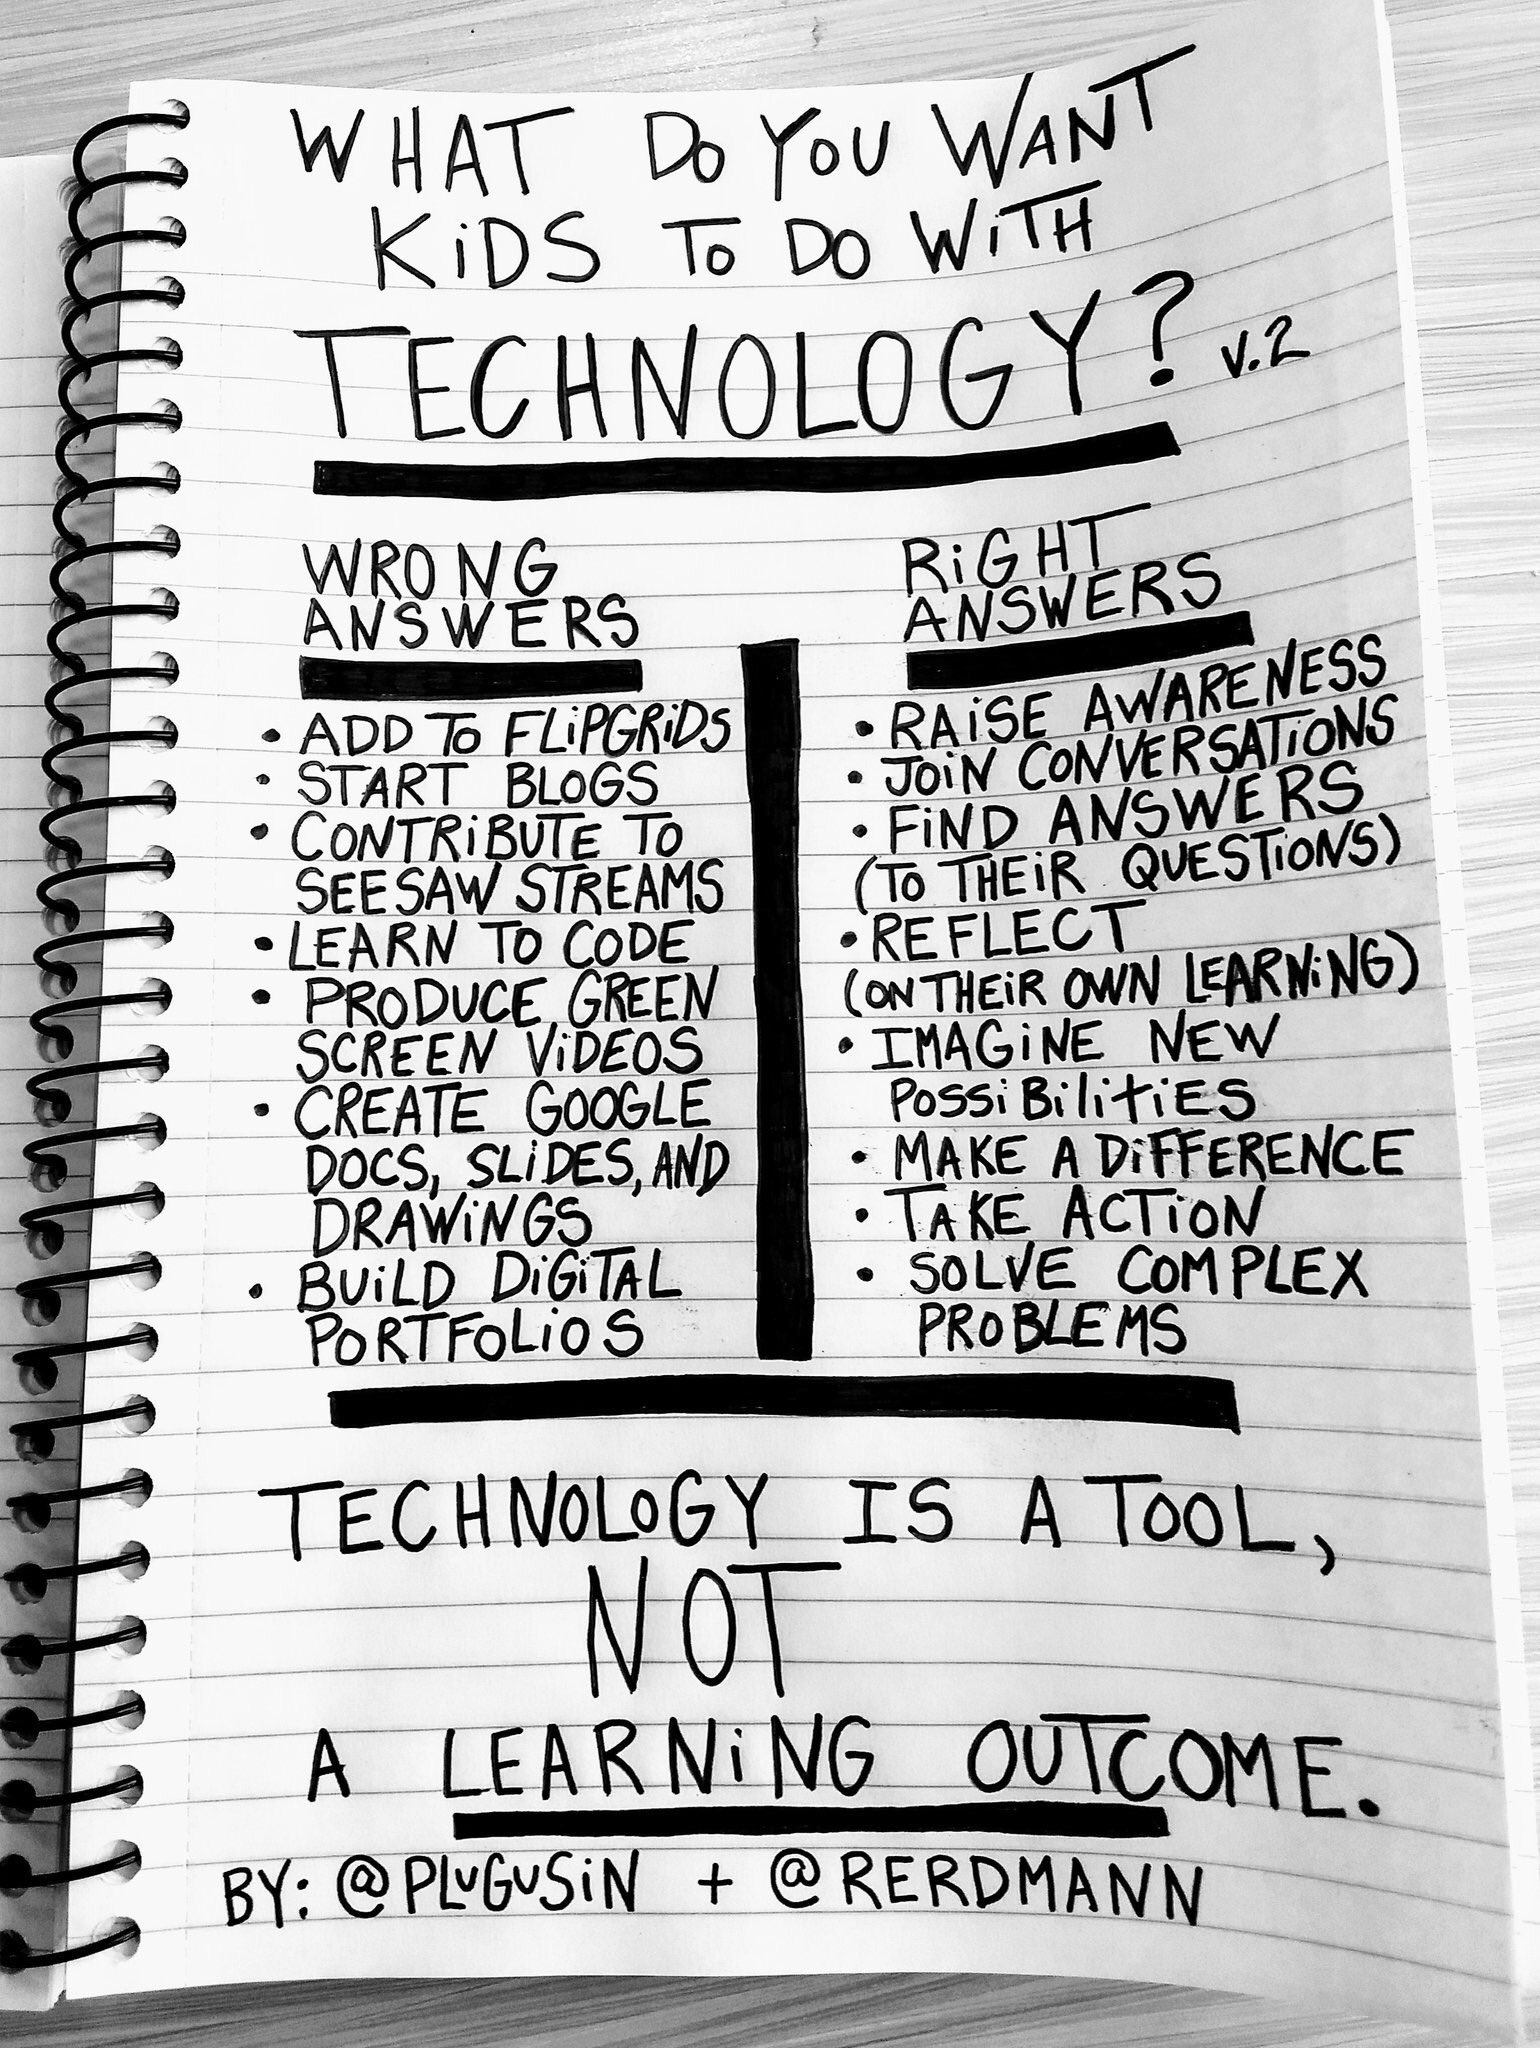 WHAT DO YOU WANT
KiDS TO DO WiTH
TECHNOLOGY? V.2
WRONG
ANSWERS
• ADD TO FLiPGRiDS
• START BLOGS
• CONTRiBUTE TO
SEESAW STREAMS
• LEARN TO CODE
• PRODUCE GREEN
SCREEN ViDEOS
• CREATE GOOGLE
DOCS, SLiDES, AND
DRAWiNGS
• BUiLD DiGiTAL
PORTFOLiOS
RiGHT
ANSWERS
• RAiSE AWARENESS
• JOiN CONVERSATiONS
• FiND ANSWERS
(TO THEiR QUESTiONS)
• REFLECT
(ON THEiR OWN LEARNiNG)
• IMAGiNE NEW
POSSiBiLiTiES
• MAKE A DiFFERENCE
• TAKE ACTiON
• SOLVE COMPLEX
PROBLEMS
TECHNOLOGY IS A TOOL,
NOT
A LEARNiNG OUTCOME.
BY: @PLUGUSiN + @RERDMANN